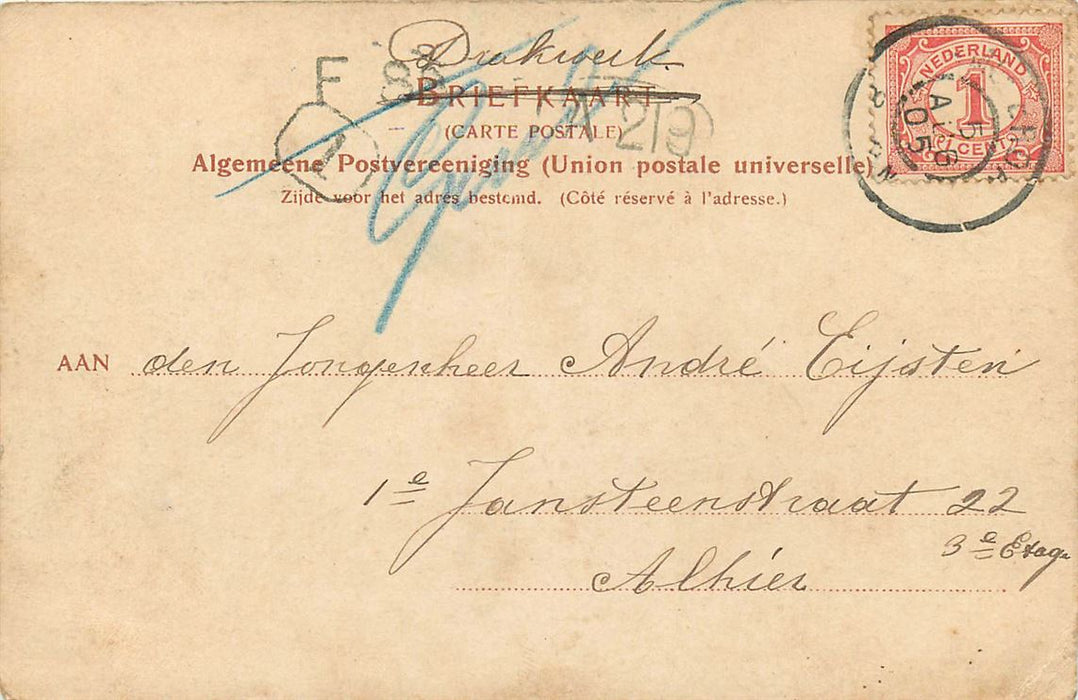 Drukwerk
BRIEFKAART
(CARTE POSTALE)
Algemeene Postvereeniging (Union postale universelle)
Zijde voor het adres bestemd. (Côté réservé à l'adresse.)
NEDERLAND
1
CENT
5 AUG 05
F
1
AAN den Jongenheer André Eijsten
1e Jansteenstraat 22
3e Etage
Alhier